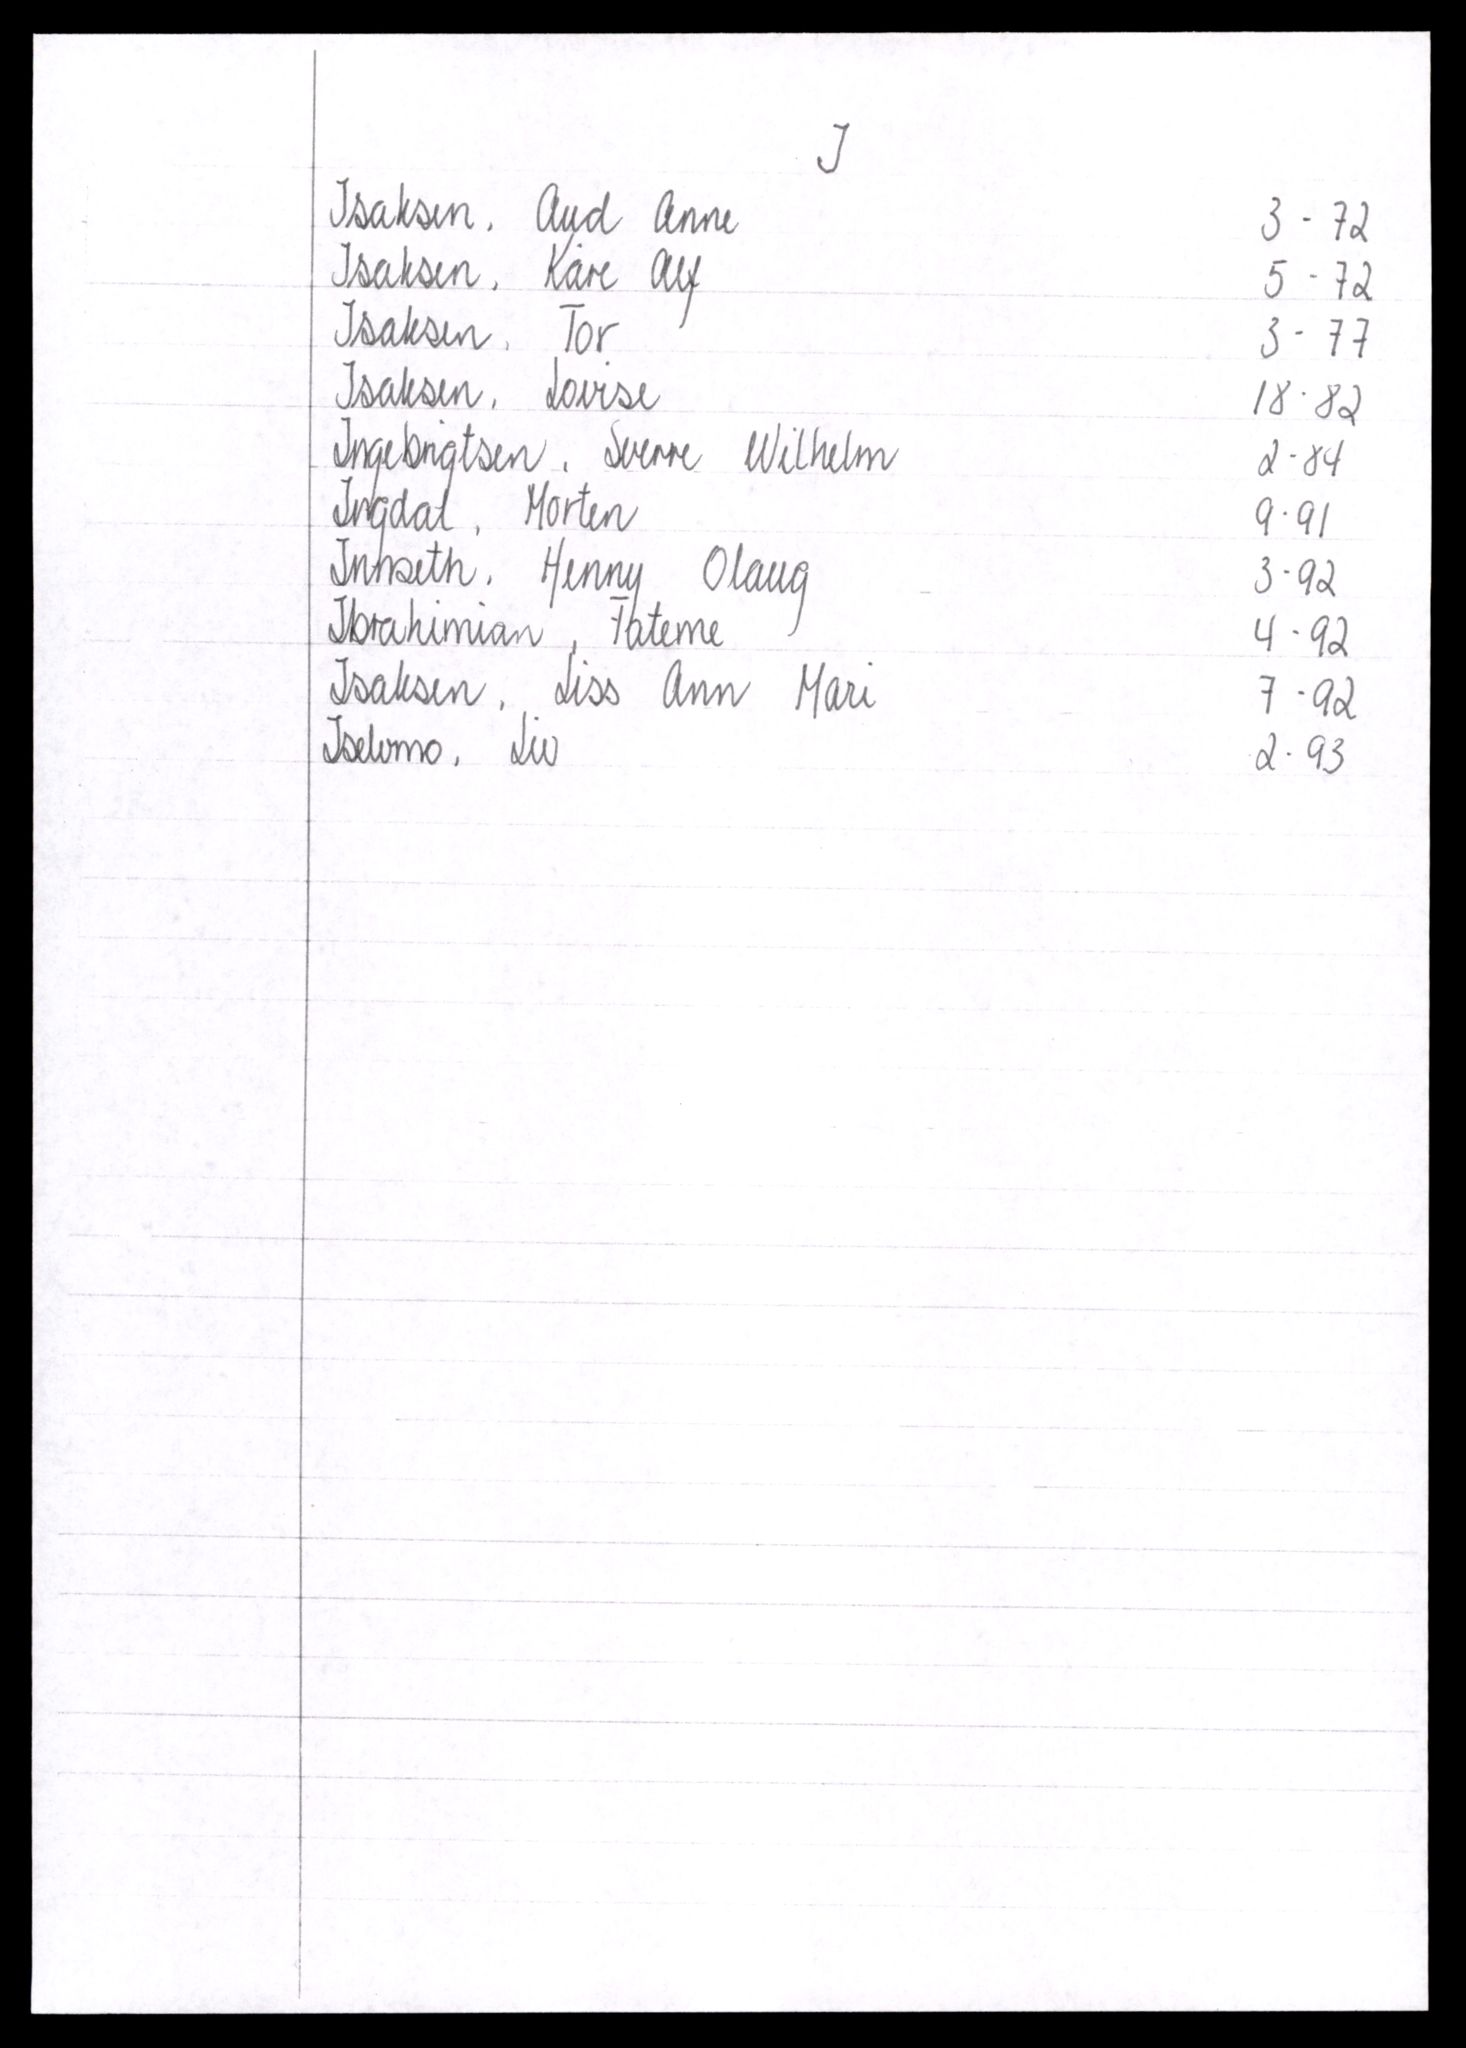 I
Isaksen, Aud Anne 3 - 72
Isaksen, Kåre Alf 5 - 72
Isaksen, Tor 3 - 77
Isaksen, Lovise 18 - 82
Ingebrigtsen, Sverre Wilhelm 2 - 84
Ingdal, Morten 9 - 91
Innseth, Henny Olaug 3 - 92
Ibrahimian, Fateme 4 - 92
Isaksen, Liss Ann Mari 7 - 92
Iselvmo, Liv 2 - 93